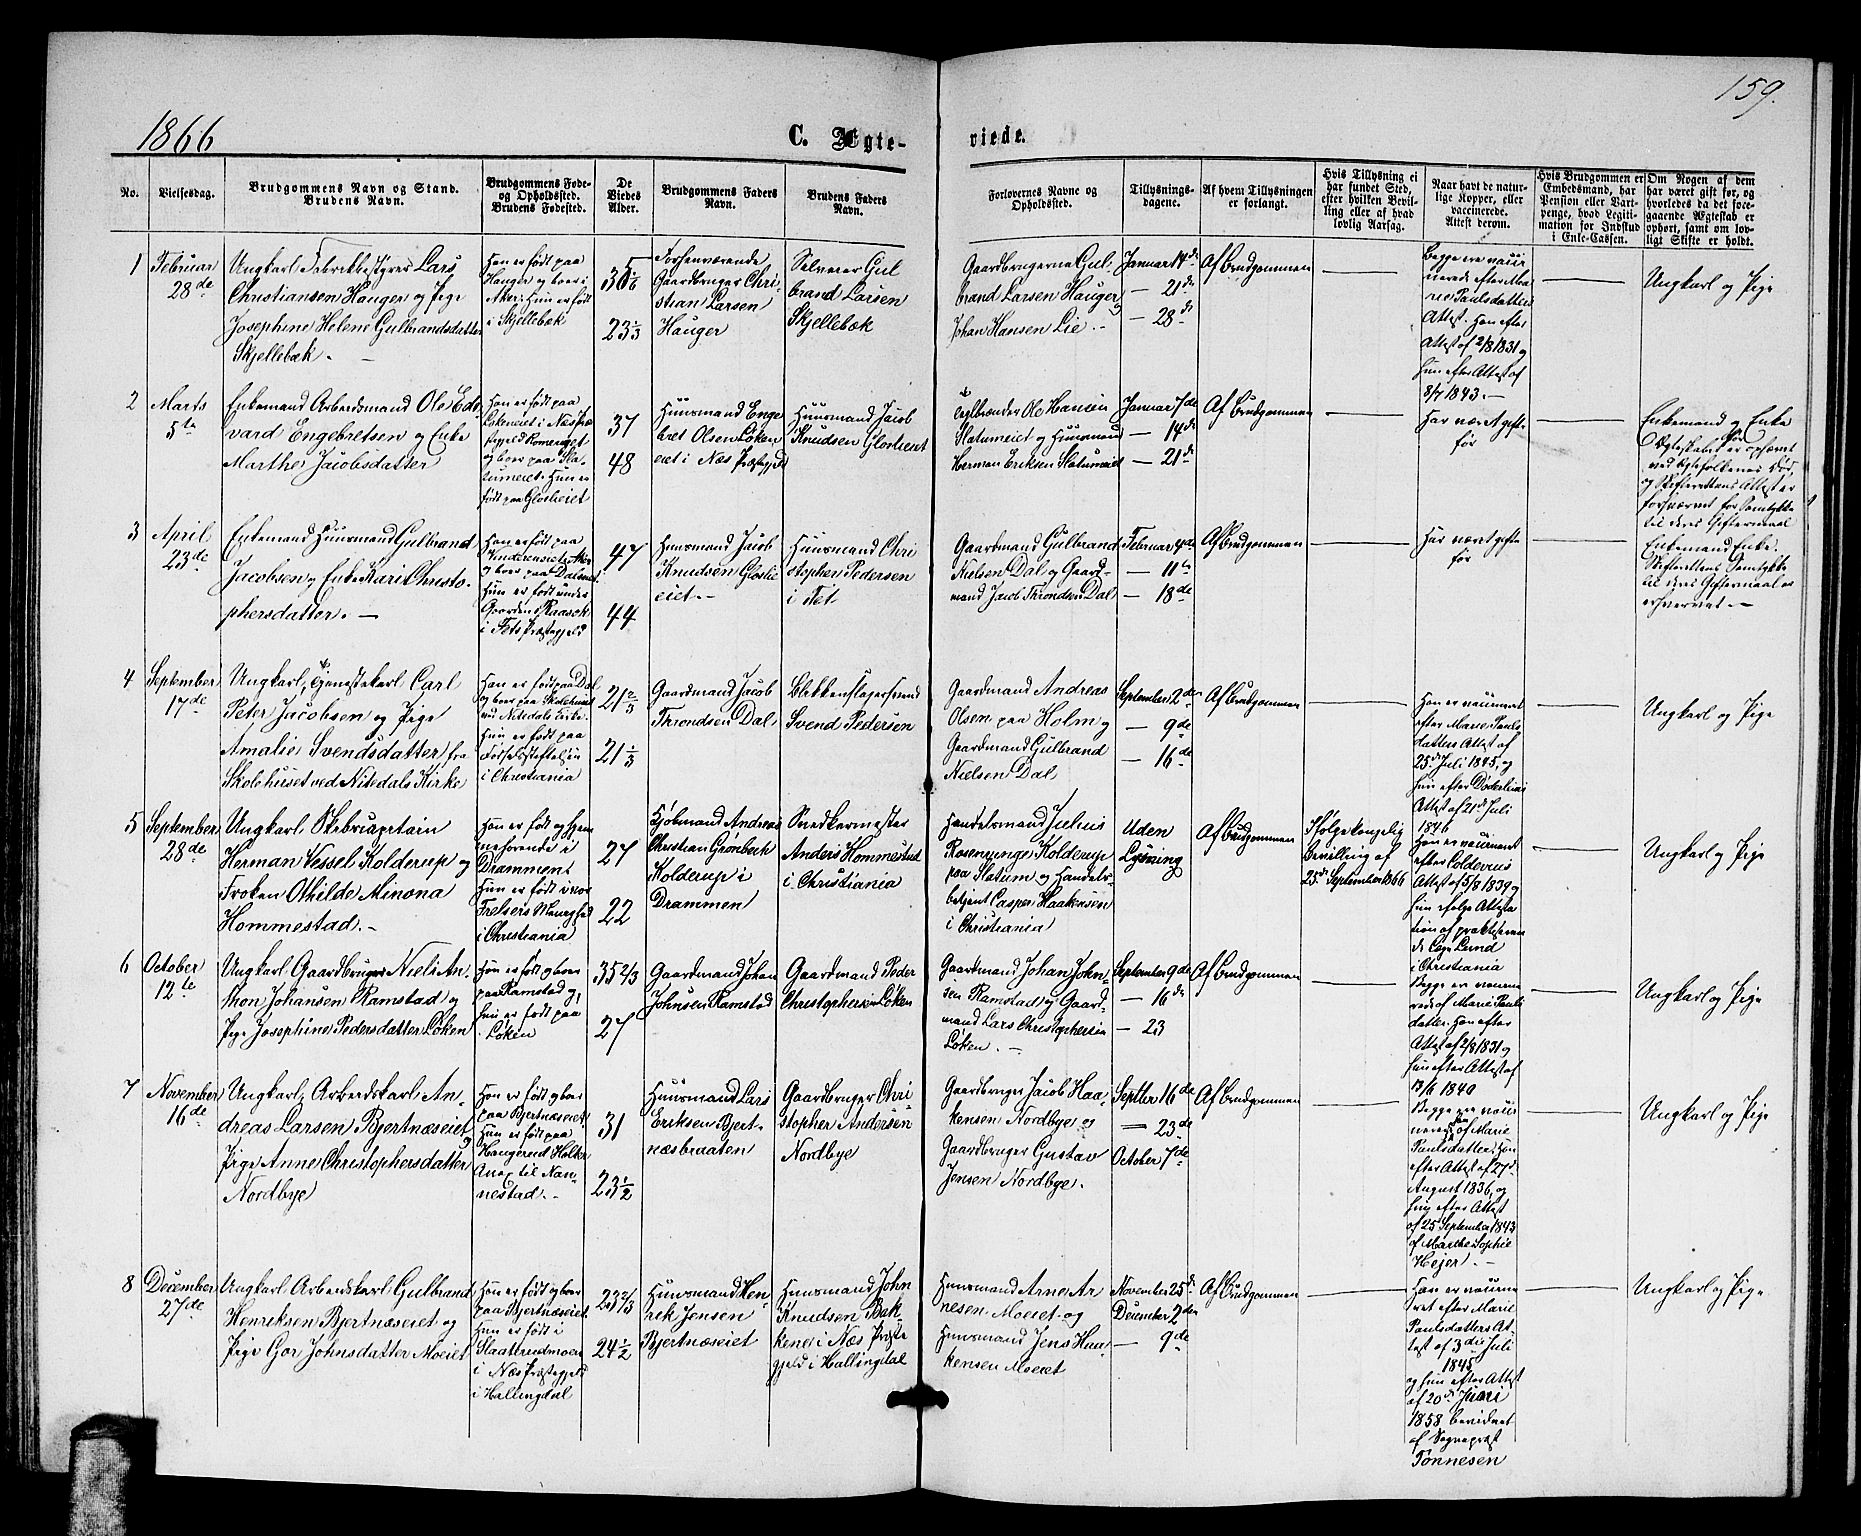 159.
1866
C. Ægte-
viede.
No.
Vielsesdag.
Brudgommens Navn og Stand.
Brudens Navn.
Brudgommens Føde-
og Opholdssted.
Brudens Fødested.
De
Viedes
Alder.
Brudgommens Faders
Navn.
Brudens Faders
Navn.
Forlovernes Navne og
Opholdssted.
Tillysnings-
dagene.
Af hvem Tillysningen
er forlangt.
Hvis Tillysning ei
har fundet Sted,
efter hvilken Bevil-
ling eller af hvad
lovlig Aarsag.
Naar havt de natur-
lige Kopper, eller
vaccinerede.
Attest derom.
Hvis Brudgommen er
Embedsmand, har
Pension eller Vart-
penge, hvad Legiti-
mation for Indskud
i Enke-Cassen.
Om Nogen af dem
har været gift før, og
hvorledes da det fore-
gaaende Ægteskab er
ophørt, samt om lov-
ligt Skifte er holdt.
1
Februar
28de
Ungkarl Fabrikbestyrer Lars
Christiansen Hauger og Pige
Josephine Helene Gulbrandsdatter
Skjellebæk. —
Han er født paa
Hauger og boer i
Aker. Hun er født
i Skjellebæk
35 1/6
23 1/3
Forhenværende
Gaardbruger Chri-
stian Larsen
Hauger
Selveier Gul
brand Larsen
Skjellebæk
Gaardbrugerne Gul-
brand Larsen Hauger
Johan Hansen Lie. —
Januar 14de
— 21de
— 28de
Af Brudgommen
Begge ere vacci-
nerede efter Ma-
rie Paulsdatters
Attest. Han efter
Attest af 2/8 1831 og
hun efter Attest af
8/7 1843. —
Ungkarl og Pige
2
Marts
5te
Enkemand Arbeidsmand Ole Ed-
vard Engebretsen og Enke
Marthe Jacobsdatter
Han er født paa
Løkeneiet i Næs Præ
stegjeld Romeriget
og boer paa Sla-
tumeiet. Hun er
født paa Glosleiet
37
48
Huusmand Enge
bret Olsen Løken
eiet i Næs Præstegjeld
Huusmand Jacob
Knudsen Glosleiet
Teglbrænder Ole Hansen
Slatumeiet og Huusmand
Herman Eriksen Slatumeiet
Januar 7de
— 14de
— 21de
Af Brudgommen
Har været gifte
før
Enkemand og Enke
Ægteskabet er ophævet
ved Ægtefolkenes Død,
og Skifterettens Attest er
forhvervet for Samtykke
til deres Giftermaal
3
April
23de
Enkemand Huusmand Gulbrand
Jacobsen og Enke Kari Christo-
phersdatter. —
Han er født paa
og boer paa Dalseiet
Hun er født under
Gaarden Raasok
i Fets Præstegjeld
47
44
Huusmand Jacob
Knudsen Gloslie
eiet. —
Huusmand Chri
stopher Pedersen
i Fet
Gaardmand Gulbrand
Nielsen Dal og Gaard-
mand Jacob Throndsen Dal
Februar 4de
— 11te
— 18de
Af Brudgommen
Har været gifte
før
Enkemand Enke.
Skifterettens Samtykke
til deres Giftermaal er
erhvervet. —
4
September
17de
Ungkarl, Tjenestekarl Carl
Peter Jacobsen og Pige
Amalie Svendsdatter fra
Skolehuset ved Nitedals Kirke
Han er født paa Dal
og boer paa Skolehuset
ved Nitedals Kirke.
Hun er født paa
Fødselsstiftelsen
i Christiania
21 2/3
21 1/3
Gaardmand Jacob
Throndsen Dal
Blikkenslagersvend
Svend Pedersen
Gaardmand Andreas
Olsen paa Holm og
Gaardmand Gulbrand
Nielsen Dal
September 2den
— 9de
— 16de
Af Brudgommen
Han er vaccineret
efter Marie Pauls
datters Attest af
25de Juli 1845, og
hun efter Døderleins
Attest af 21de Juli
1846
Ungkarl og Pige
5
September
28de
Ungkarl Skibscaptain
Herman Vessel Kolderup og
Frøken Othilde Minona
Hommestad. —
Han er født og hjem
mehørende i
Drammen
Hun er født i vor
Frelsers Menighed
i Christiania
27
22
Kjøbmand Andreas
Christian Grønbeck
Kolderup i
Drammen
Snedkermester
Anders Hommestad
i Christiania
Handelsmand Julius
Rosenvinge Kolderup
paa Slatum og Handels-
betjent Casper Haakensen
i Christiania
Uden
Lysning
Af Brudgommen
Ifølge kongelig
Bevilling af
25de September 1866
Han er vaccineret
efter Coldevins
Attest af 5/8 1839 og
hun ifølge Attesta
tion af praktiseren
de Læge Lund
i Christiania
Ungkarl og Pige
6
October
12te
Ungkarl Gaardbruger Niels An-
thon Johansen Ramstad og
Pige Josephine Pedersdatter Løken
Han er født og boer
paa Ramstad og
hun er født paa
Løken
35 2/3
27
Gaardmand Johan
Johnsen Ramstad
Gaardmand Peder
Christophersen Løken
Gaardmand Johan John-
sen Ramstad og Gaard-
mand Lars Christophersen
Løken. —
September 9de
— 16de
— 23
Af Brudgommen
Begge er vaccine
rede af Marie Pauls
datter. Han efter
Attest af 2/8 1831 og
hun efter Attest af
13/8 1840
Ungkarl og Pige
7
November
16de
Ungkarl, Arbeidskarl An-
dreas Larsen Bjertnæseiet og
Pige Anne Christophersdatter
Nordbye
Han er født og boer
paa Bjertnæseiet
Hun er født paa
Haugereid Holter
Anex til Nan-
nestad. —
31
23 1/2
Huusmand Lars
Eriksen Bjert-
næsbraaten
Gaardbruger Chri
stopher Andersen
Nordbye
Gaardbruger Jacob Haa-
kensen Nordbye og
Gaardbruger Gustav
Jensen Nordbye.
Septber 16de
— 23de
October 7de
Af Brudgommen
Begge er vacci
nerede af Marie
Paulsdatter. Han
efter Attest af 27de
August 1836, og
hun efter Attest
af 25 September 1843
af Marthe Sophie
Hejer. —
Ungkarl og Pige
8
December
27de
Ungkarl Arbeidskarl Gulbrand
Henriksen Bjertnæseiet og
Pige Gor Johnsdatter Moeiet
Han er født og boer
paa Bjertnæseiet
Hun er født i
Slaattreidmoen
i Næs Præstegjeld
i Hallingdal
23 2/3
24 1/2
Huusmand Hen-
rik Jensen
Bjertnæseiet
Huusmand John
Knudsen Bak-
kene i Næs Præste
gjeld i Hallingdal
Huusmand Arne Ar
nesen Moeiet og
Huusmand Jens Haa-
kensen Moeiet
November 25de
December 2den
— 9de
Af Brudgommen
Han er vaccine
ret efter Marie
Paulsdatters At-
test af 3die Juli
1845
og hun efter Attest
af 20de Juni
1858 bevidnet
af Sognepræst
Tønnesen
Ungkarl og Pige